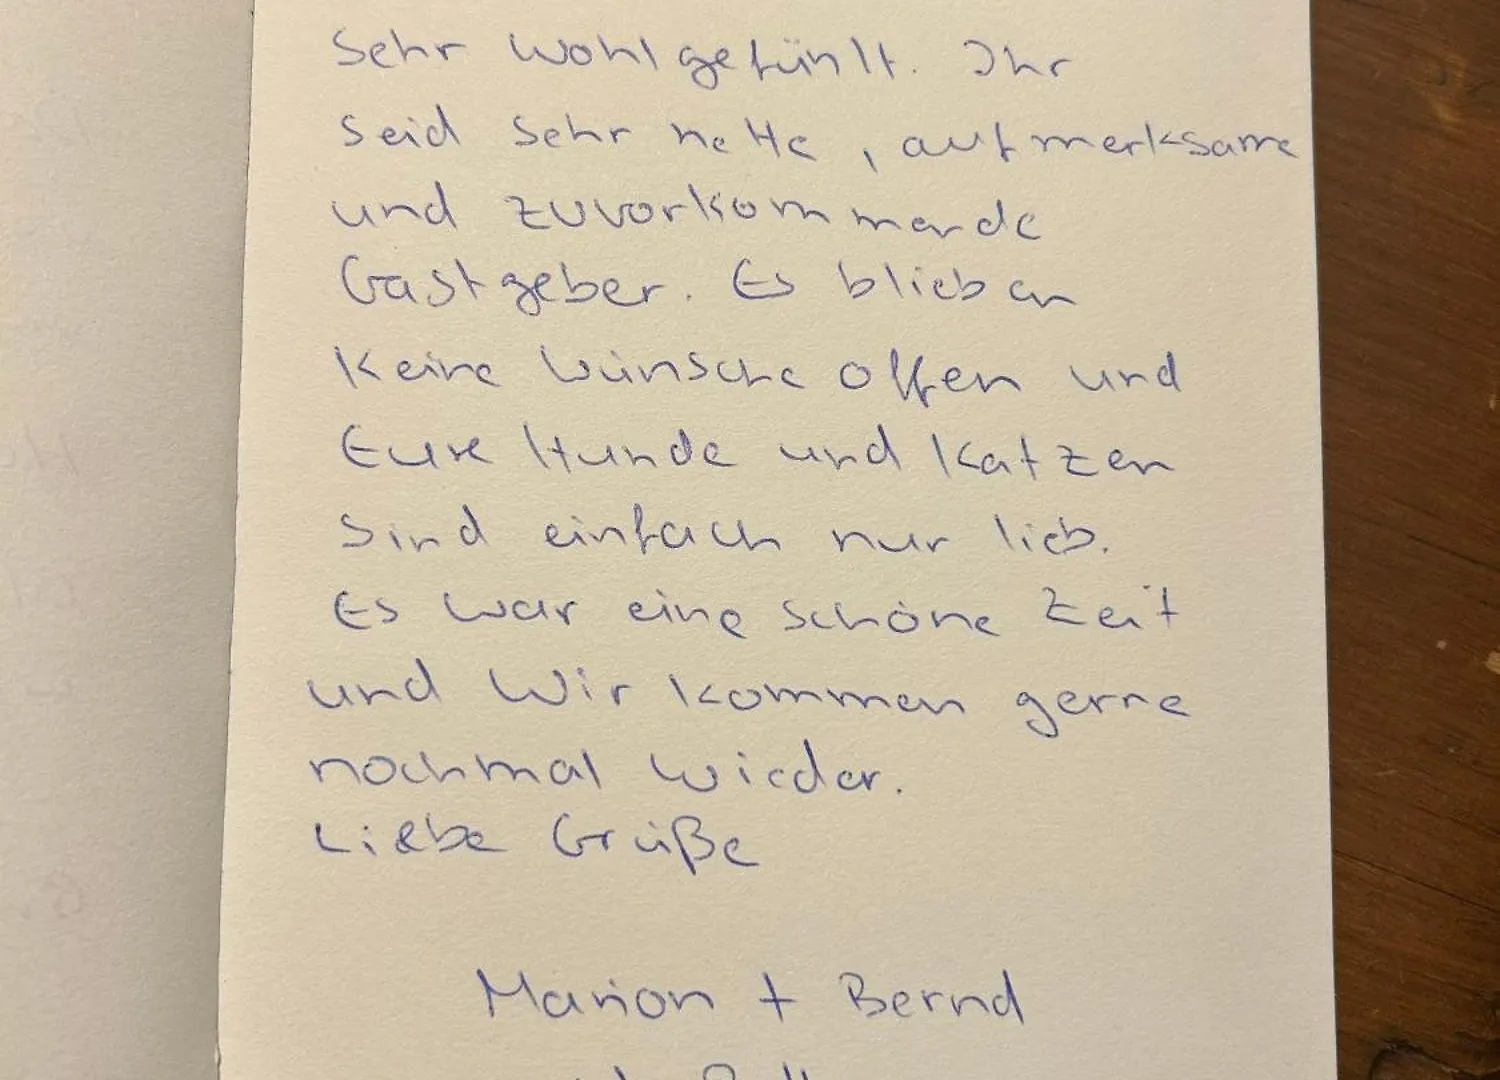 Sehr wohlgefühlt. Ihr
seid sehr nette, aufmerksame
und zuvorkommende
Gastgeber. Es blieben
keine Wünsche offen und
Eure Hunde und Katzen
sind einfach nur lieb.
Es war eine schöne Zeit
und wir kommen gerne
nochmal wieder.
Liebe Grüße
Marion + Bernd